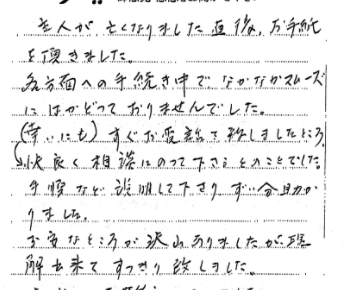 主人が亡くなりました直後、お手紙
を頂きました。
各方面への手続き中でなかなかスムーズ
にはかどっておりませんでした。
(幸いにも)すぐお電話で致しましたところ、
快良く相談にのって下さるとのことでした。
手順など説明して下さり ずい分助か
りました。
不安なところが沢山ありましたが理
解出来て すっきり致しました。